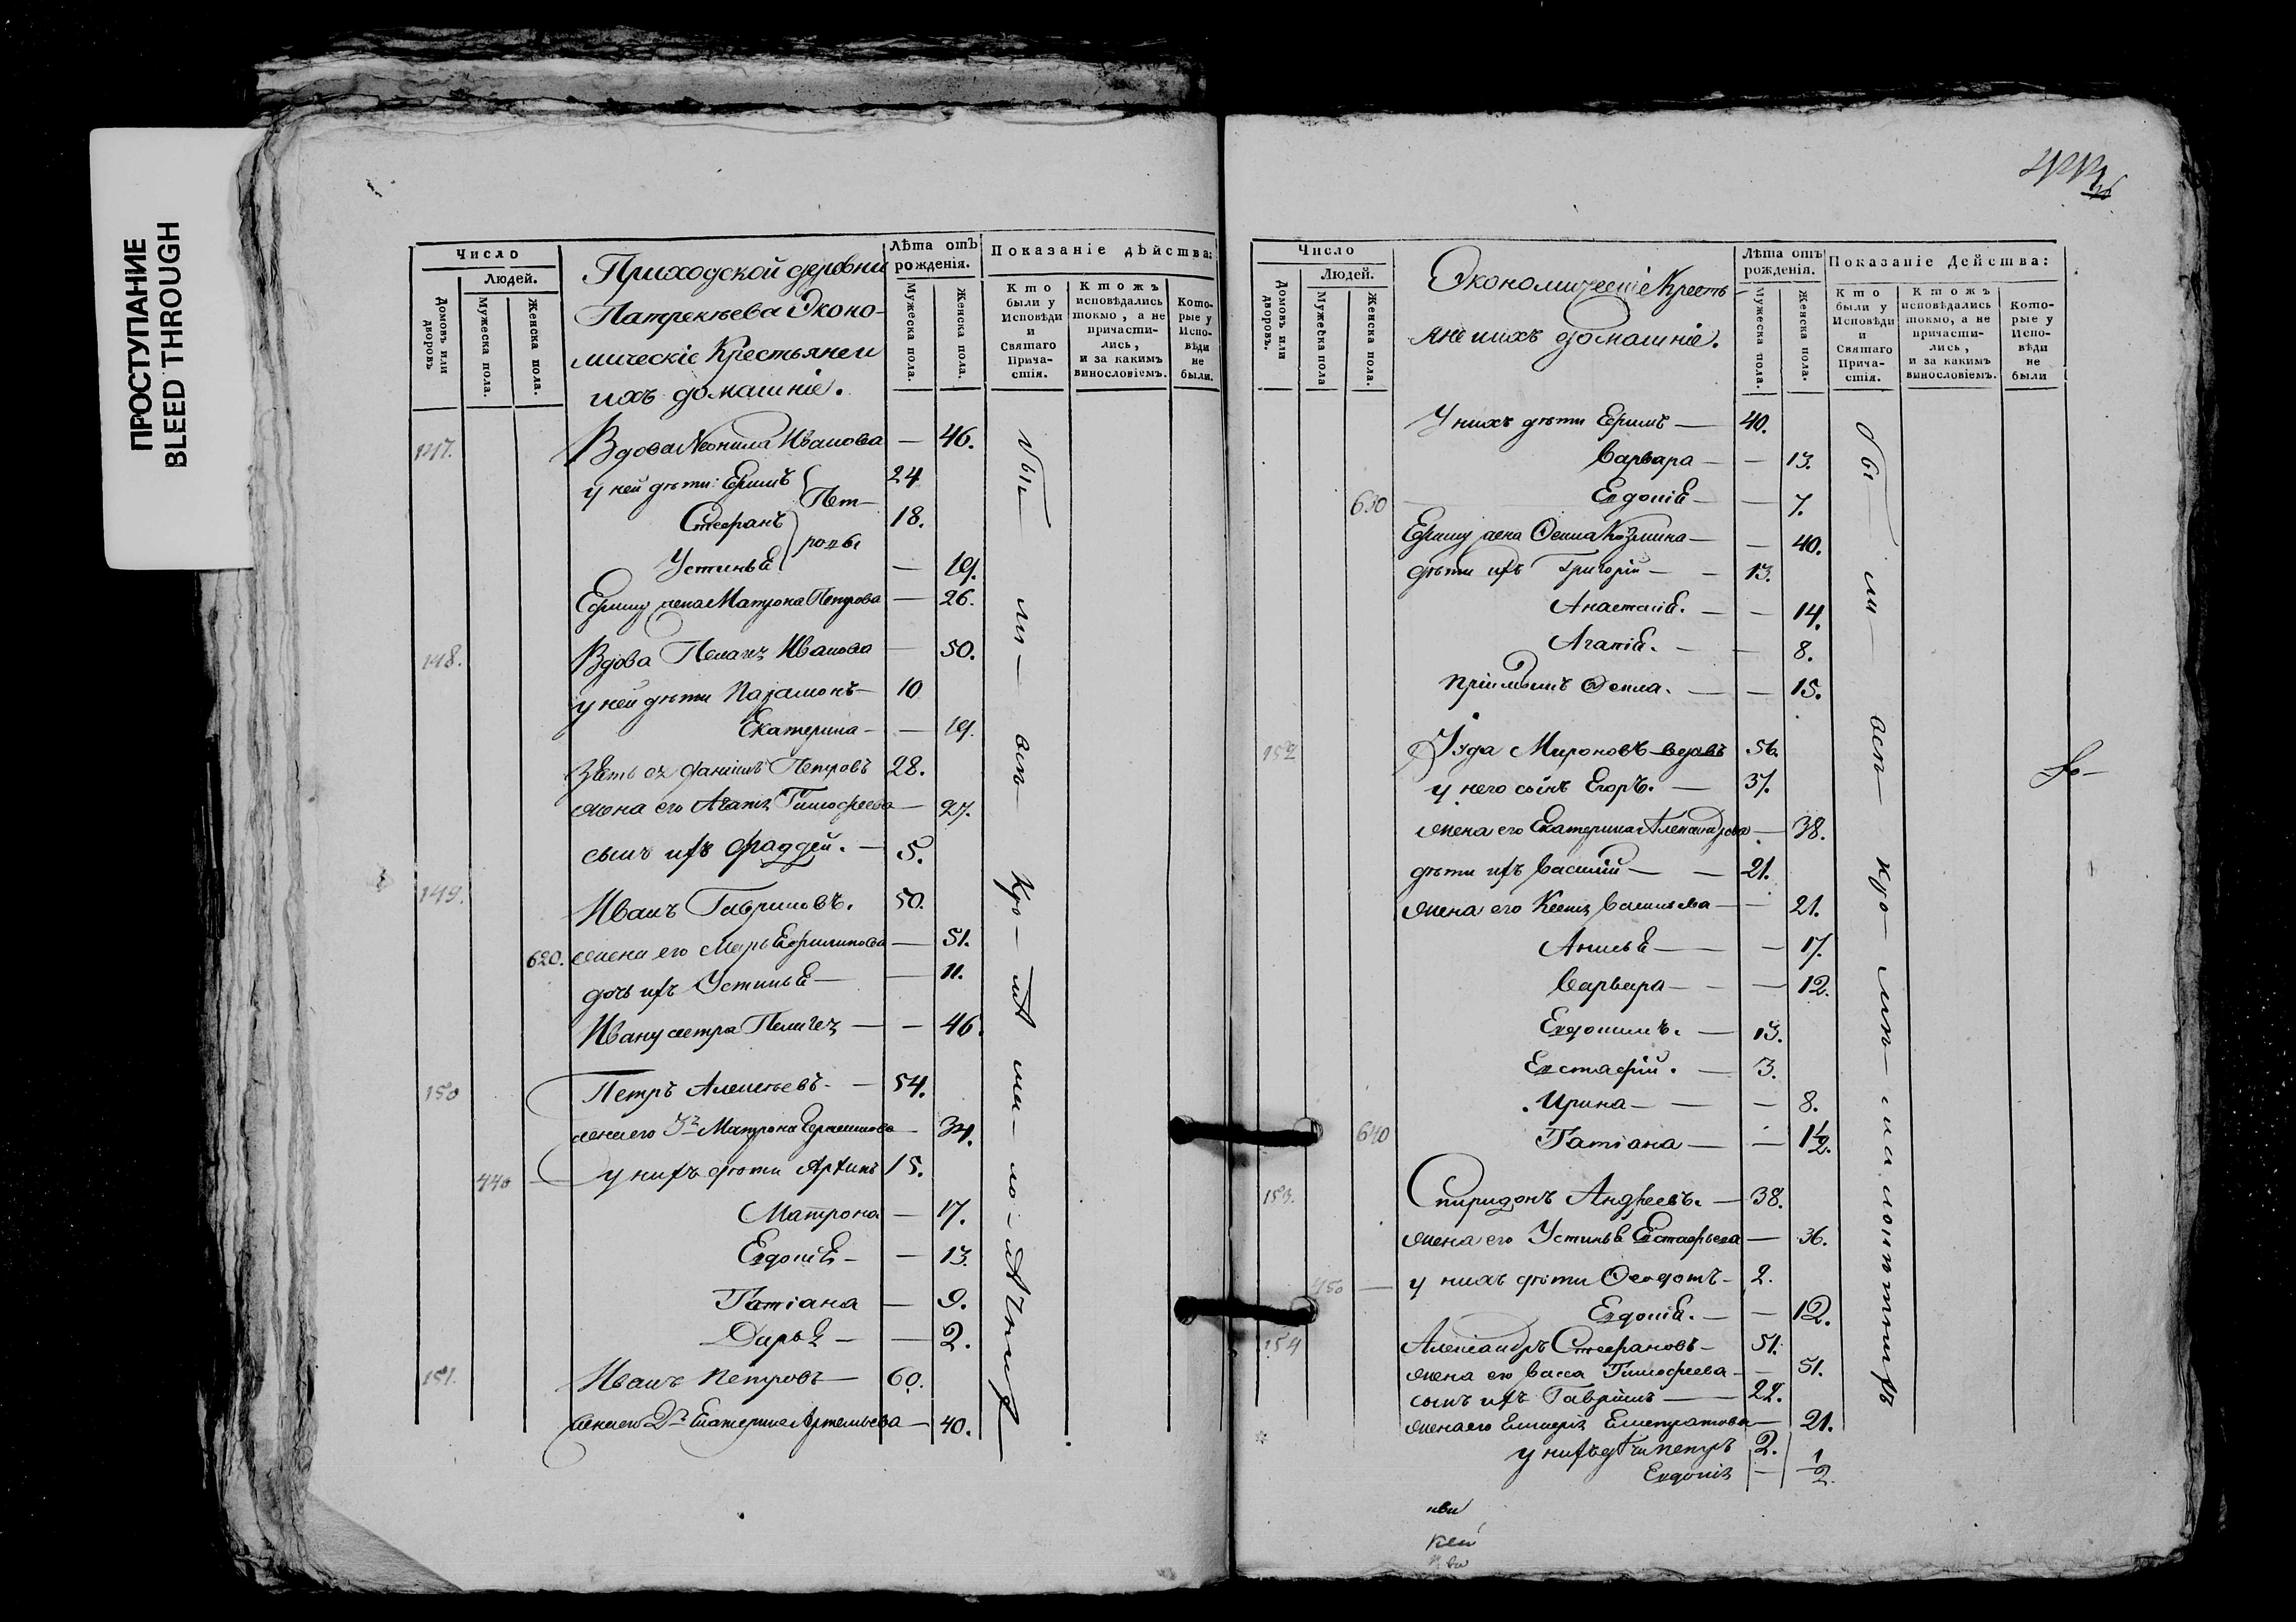 ПРОСТУПАНИЕ
BLEED THROUGH
Число
Людей.
Домовъ или дворовъ
Мужеска пола.
Женска пола.
Приходской деревни
Патрекѣева Эконо-
мическіе Крестьяне и
ихъ домашніе.
Лѣта отъ
рожденія.
Мужеска пола.
Женска пола.
Показаніе дѣйства:
Кто
были у
Исповѣди
и
Святаго
Прича-
стія.
Ктожъ
исповѣдались
токмо, а не
причасти-
лись,
и за какимъ
винословіемъ.
Кото-
рые у
Испо-
вѣди
не
были.
147. Вдова Неонила Иванова — 46.
у ней дѣти: Ефимъ Пет- 24
Стефанъ 18.
ровы
Устинья — 19.
Ефиму жена Матрона Петрова — 26.
148. Вдова Пелагея Иванова — 50.
у ней дѣти Парамонъ — 10
Екатерина — 19.
Зять ея Данилъ Петровъ 28.
жена его Агафья Тимофеева — 27.
сынъ ихъ Фаддей. — 5.
149. Иванъ Гавриловъ. 50.
620. жена его Марья Филипова — 51.
дочь ихъ Устинья — 11.
Ивану сестра Пелагея — 46.
150 Петръ Алексѣевъ. — 54.
жена его Матрона Герасимова — 34.
440 у нихъ дѣти Архипъ 15.
Матрона — 17.
Евдокія — 13.
Татіана — 9.
Дарья — 2.
151. Иванъ Петровъ — 60.
жена его Екатерина Артемьева — 40.
Число
Людей.
Домовъ или дворовъ.
Мужеска пола
Женска пола.
Экономическіе Кресть-
яне и ихъ домашніе.
Лѣта отъ
рожденія.
Мужеска пола.
Женска пола.
Показаніе Действа:
Кто
были у
Исповѣди
и
Святаго
Прича-
стія.
Ктожъ
исповѣдались
токмо, а не
причасти-
лись,
и за какимъ
винословіемъ.
Кото-
рые у
Испо-
вѣди
не
были
У нихъ дѣти Ефимъ — 40.
Варвара — 13.
630 Евдокія — 7.
Ефиму жена Фекла Козмина — 40.
дѣти ихъ Григорій — 13.
Анастасія. — 14.
Агафія. — 8.
Пріимышъ Фекла. — 15.
152 Іуда Мироновъ вдовъ 56.
у него сынъ Егоръ. — 37.
жена его Екатерина Александрова — 38.
дѣти ихъ Василій — 21.
жена его Ксенія Васильева — 21.
Анисья — 17.
Варвара — 12.
Евдокимъ. — 13.
Евстафій. — 3.
Ирина — 8.
640 Татіана — 1½.
153. Спиридонъ Андреевъ. — 38.
жена его Устинья Евстафьева — 36.
450 у нихъ дѣти Феодотъ — 2.
Евдокія. — 12.
154 Александръ Стефановъ — 51.
жена его Васса Тимофеева — 51.
сынъ ихъ Гавріилъ — 22.
жена его — 21.
у нихъ дѣти Петръ 2.
Евдокія — ½.